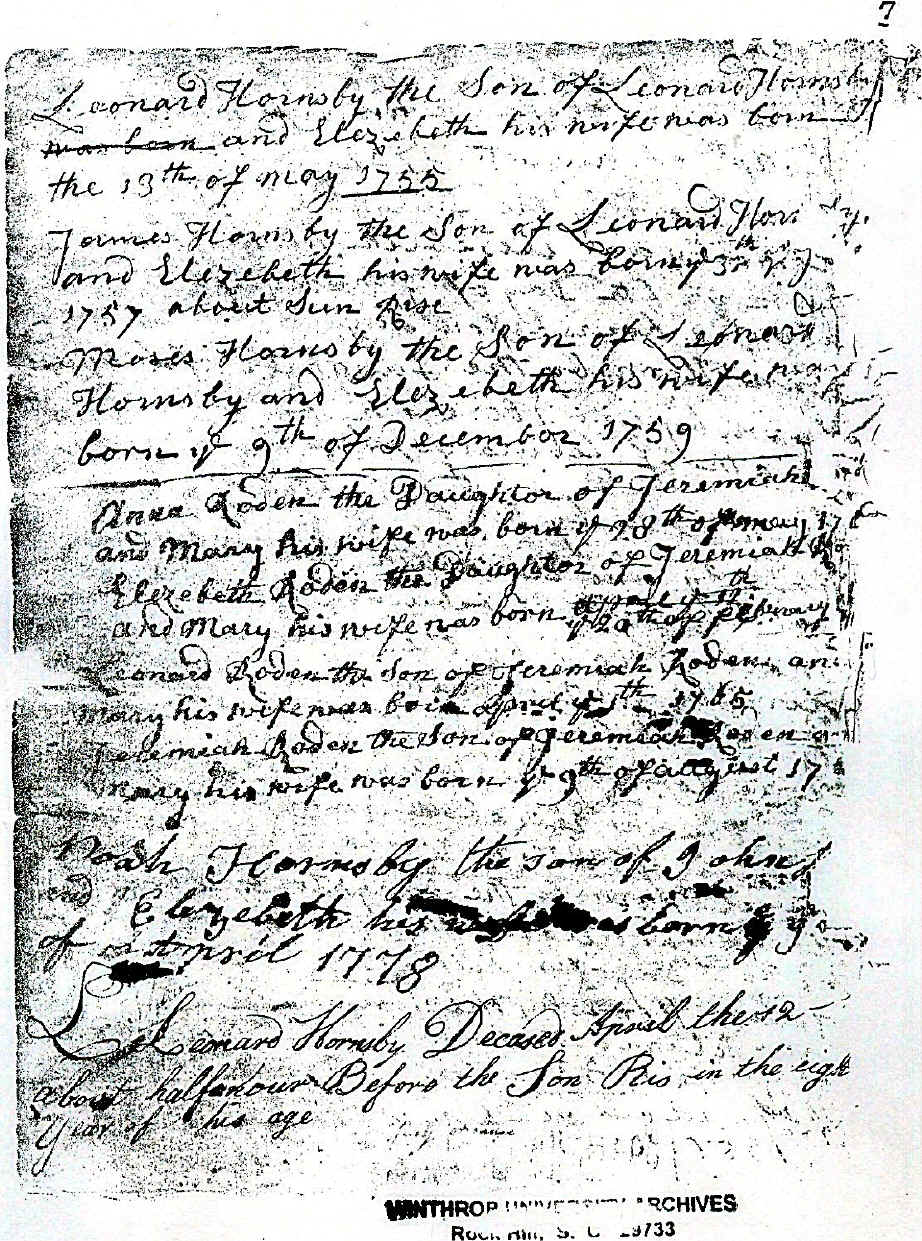 7
Leonard Hornsby the Son of Leonard Hornsby
was born and Elezebeth his wife was born
the 13th of may 1755
James Hornsby the Son of Leonard
and Elezebeth his wife was born ye
1757 about Sun Rise
Moses Hornsby the Son of Leonard
Hornsby and Elezebeth his wife was
born ye 9th of December 1759
Anna Roden the Daughter of Jeremiah
and Mary his wife was born ye 28th of may
Elezebeth Roden the Daughter of Jeremiah
and Mary his wife was born
Leonard Roden the Son of Jeremiah Roden an
Mary his wife was born April ye 1765
Jeremiah Roden the Son of Jeremiah Roden
mary his wife was born ye 9th of august
Noah Hornsby the son of John
and
Elizebeth his wife was born
of April 1778
Leonard Hornsby Deceased April the 12
about half an hour Before the Son Ris in the
Year of his age
WINTHROP UNIVERSITY ARCHIVES
Rock Hill, S. C. 29733